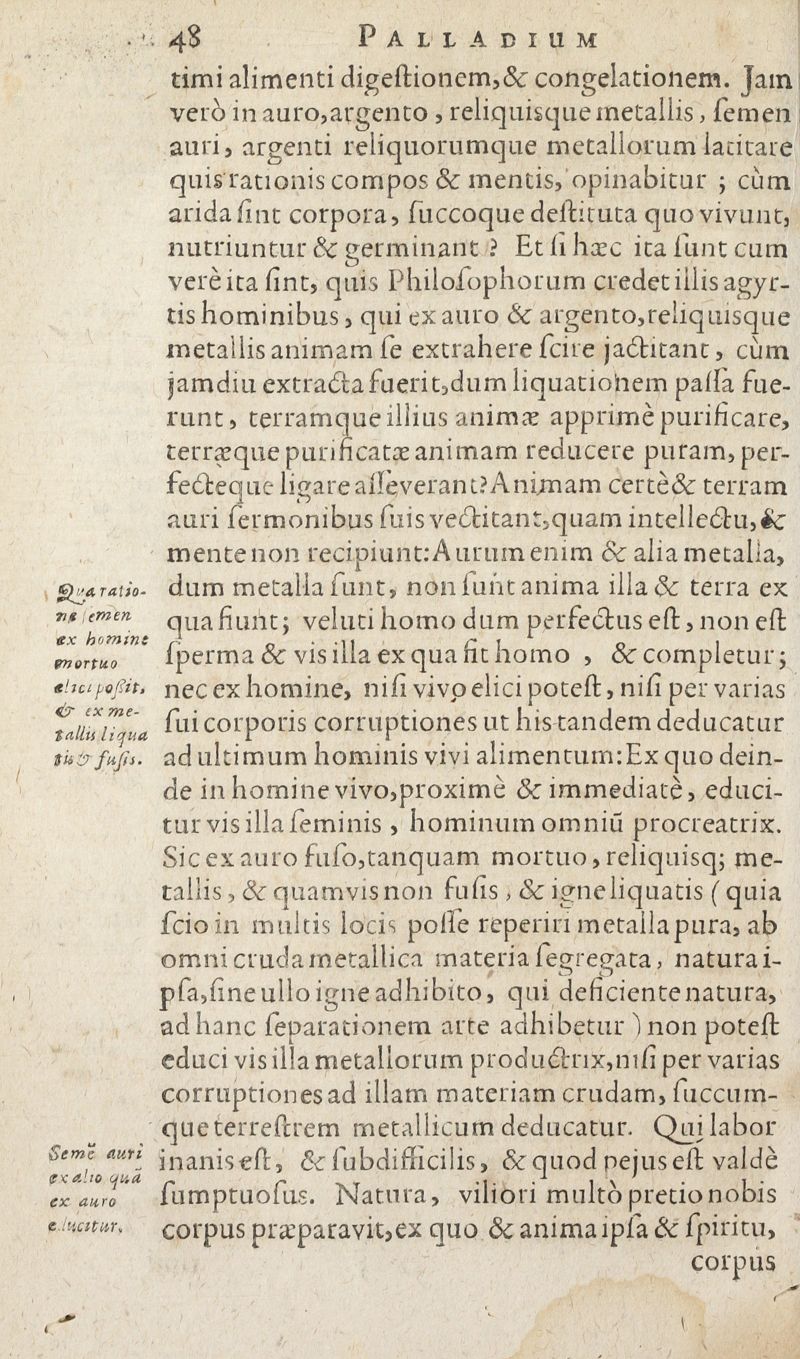 48 PALLADIUM
timi alimenti digeſtionem,& congelationem. Jam
verò in auro,argento , reliquisque metallis, ſemen
auri, argenti reliquorumque metallorum latitare
quis rationis compos & mentis, opinabitur ; cùm
arida ſint corpora, ſuccoque deſtituta quo vivunt,
nutriuntur & germinant ? Et ſi hæc ita ſunt cum
verè ita ſint, quis Philoſophorum credet illis agyr-
tis hominibus, qui ex auro & argento,reliquisque
metallis animam ſe extrahere ſcire jactitant, cùm
jamdiu extracta fuerit,dum liquationem paſſa fue-
runt, terramque illius animæ apprimè purificare,
terræque purificatæ animam reducere puram, per-
fecteque ligare aſſeverant? Animam certè & terram
auri ſermonibus ſuis vectitant,quam intellectu, &
mente non recipiunt: Aurum enim & alia metalla,
dum metalla ſunt, non ſunt anima illa & terra ex
qua fiunt; veluti homo dum perfectus eſt, non eſt
ſperma & vis illa ex qua fit homo , & completur;
nec ex homine, niſi vivo elici poteſt, niſi per varias
ſui corporis corruptiones ut his tandem deducatur
ad ultimum hominis vivi alimentum: Ex quo dein-
de in homine vivo,proximè & immediatè, educi-
tur vis illa ſeminis , hominum omniũ procreatrix.
Sic ex auro fuſo,tanquam mortuo, reliquisq; me-
tallis, & quamvis non fuſis, & igne liquatis ( quia
ſcio in multis locis poſſe reperiri metalla pura, ab
omni cruda metallica materia ſegregata, natura i-
pſa,ſine ullo igne adhibito, qui deficiente natura,
ad hanc ſeparationem arte adhibetur ) non poteſt
educi vis illa metallorum productrix,niſi per varias
corruptiones ad illam materiam crudam, ſuccum-
que terreſtrem metallicum deducatur. Qui labor
inanis eſt, & ſubdifficilis, & quod pejus eſt valdè
ſumptuoſus. Natura, viliori multò pretio nobis
corpus præparavit,ex quo & anima ipſa & ſpiritu,
corpus
Qua ratio-
ne ſemen
ex homine
mortuo
elici poßit,
& ex me-
tallis liqua
tis & fuſis.
Semē auri
ex alio quā
ex auro
elucitur.